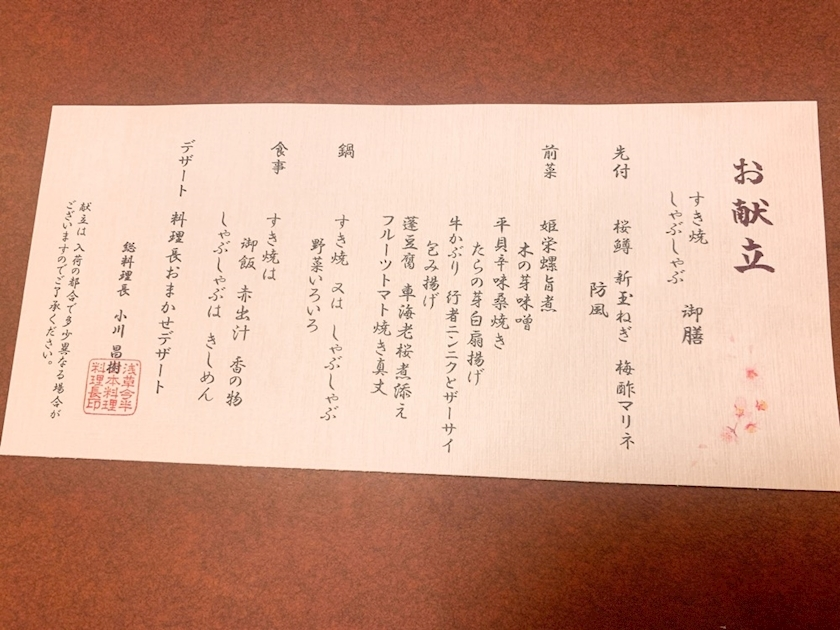 お献立
すき焼
しゃぶしゃぶ
御膳
先付 桜鱒 新玉ねぎ 梅酢マリネ
防風
前菜 姫栄螺旨煮
木の芽味噌
平貝辛味桑焼き
たらの芽白扇揚げ
牛かぶり 行者ニンニクとザーサイ
包み揚げ
蓬豆腐 車海老桜煮添え
フルーツトマト焼き真丈
鍋 すき焼 又は しゃぶしゃぶ
野菜いろいろ
食事 すき焼は
御飯 赤出汁 香の物
しゃぶしゃぶは きしめん
デザート 料理長おまかせデザート
総料理長 小川 昌樹
浅草今半
日本料理
料理長印
献立は 入荷の都合で多少異なる場合が
ございますのでご了承ください。